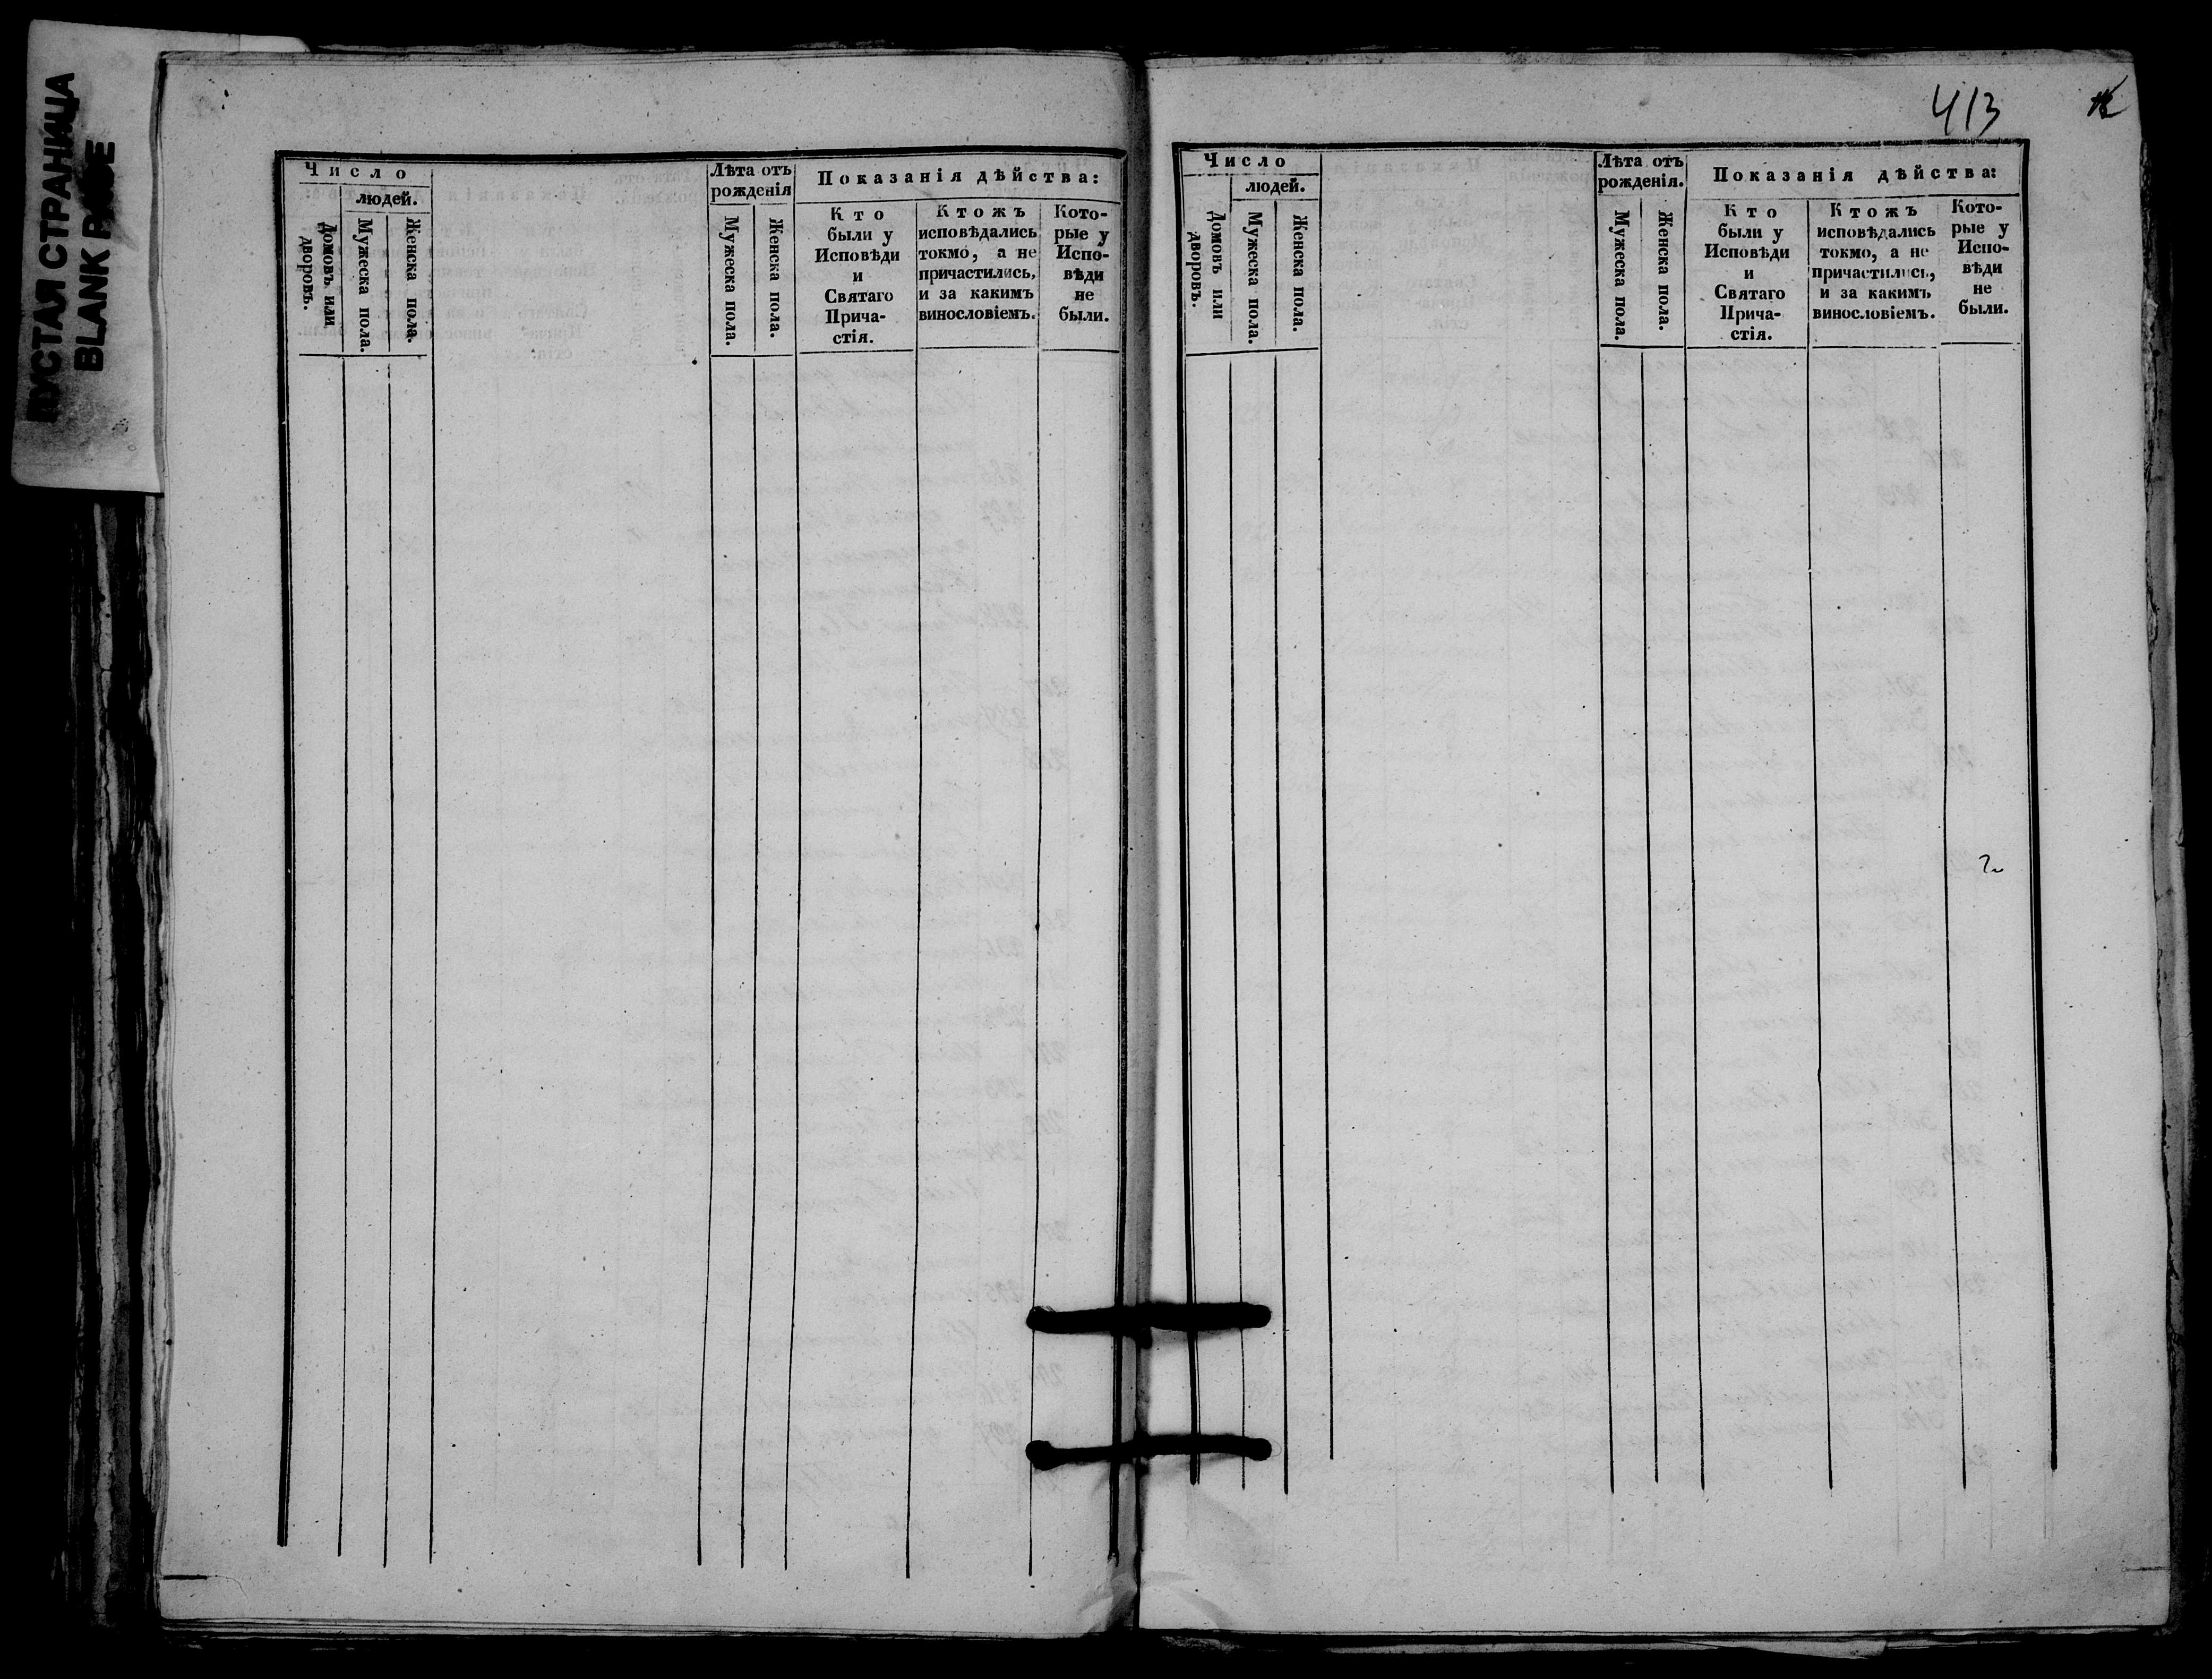 ПУСТАЯ СТРАНИЦА
BLANK PAGE
Число
людей.
Домовъ или
дворовъ.
Мужеска пола.
Женска пола.
Лѣта отъ
рожденія
Мужеска пола.
Женска пола.
Показанія дѣйства:
Кто
были у
Исповѣди
и
Святаго
Прича-
стія.
Ктожъ
исповѣдались
токмо, а не
причастились,
и за какимъ
винословіемъ.
Кото-
рые у
Испо-
вѣди
не
были.
413
Число
людей.
Домовъ или
дворовъ.
Мужеска пола.
Женска пола.
Лѣта отъ
рожденія.
Мужеска пола.
Женска пола.
Показанія дѣйства:
Кто
были у
Исповѣди
и
Святаго
Прича-
стія.
Ктожъ
исповѣдались
токмо, а не
причастились,
и за какимъ
винословіемъ.
Кото-
рые у
Испо-
вѣди
не
были.